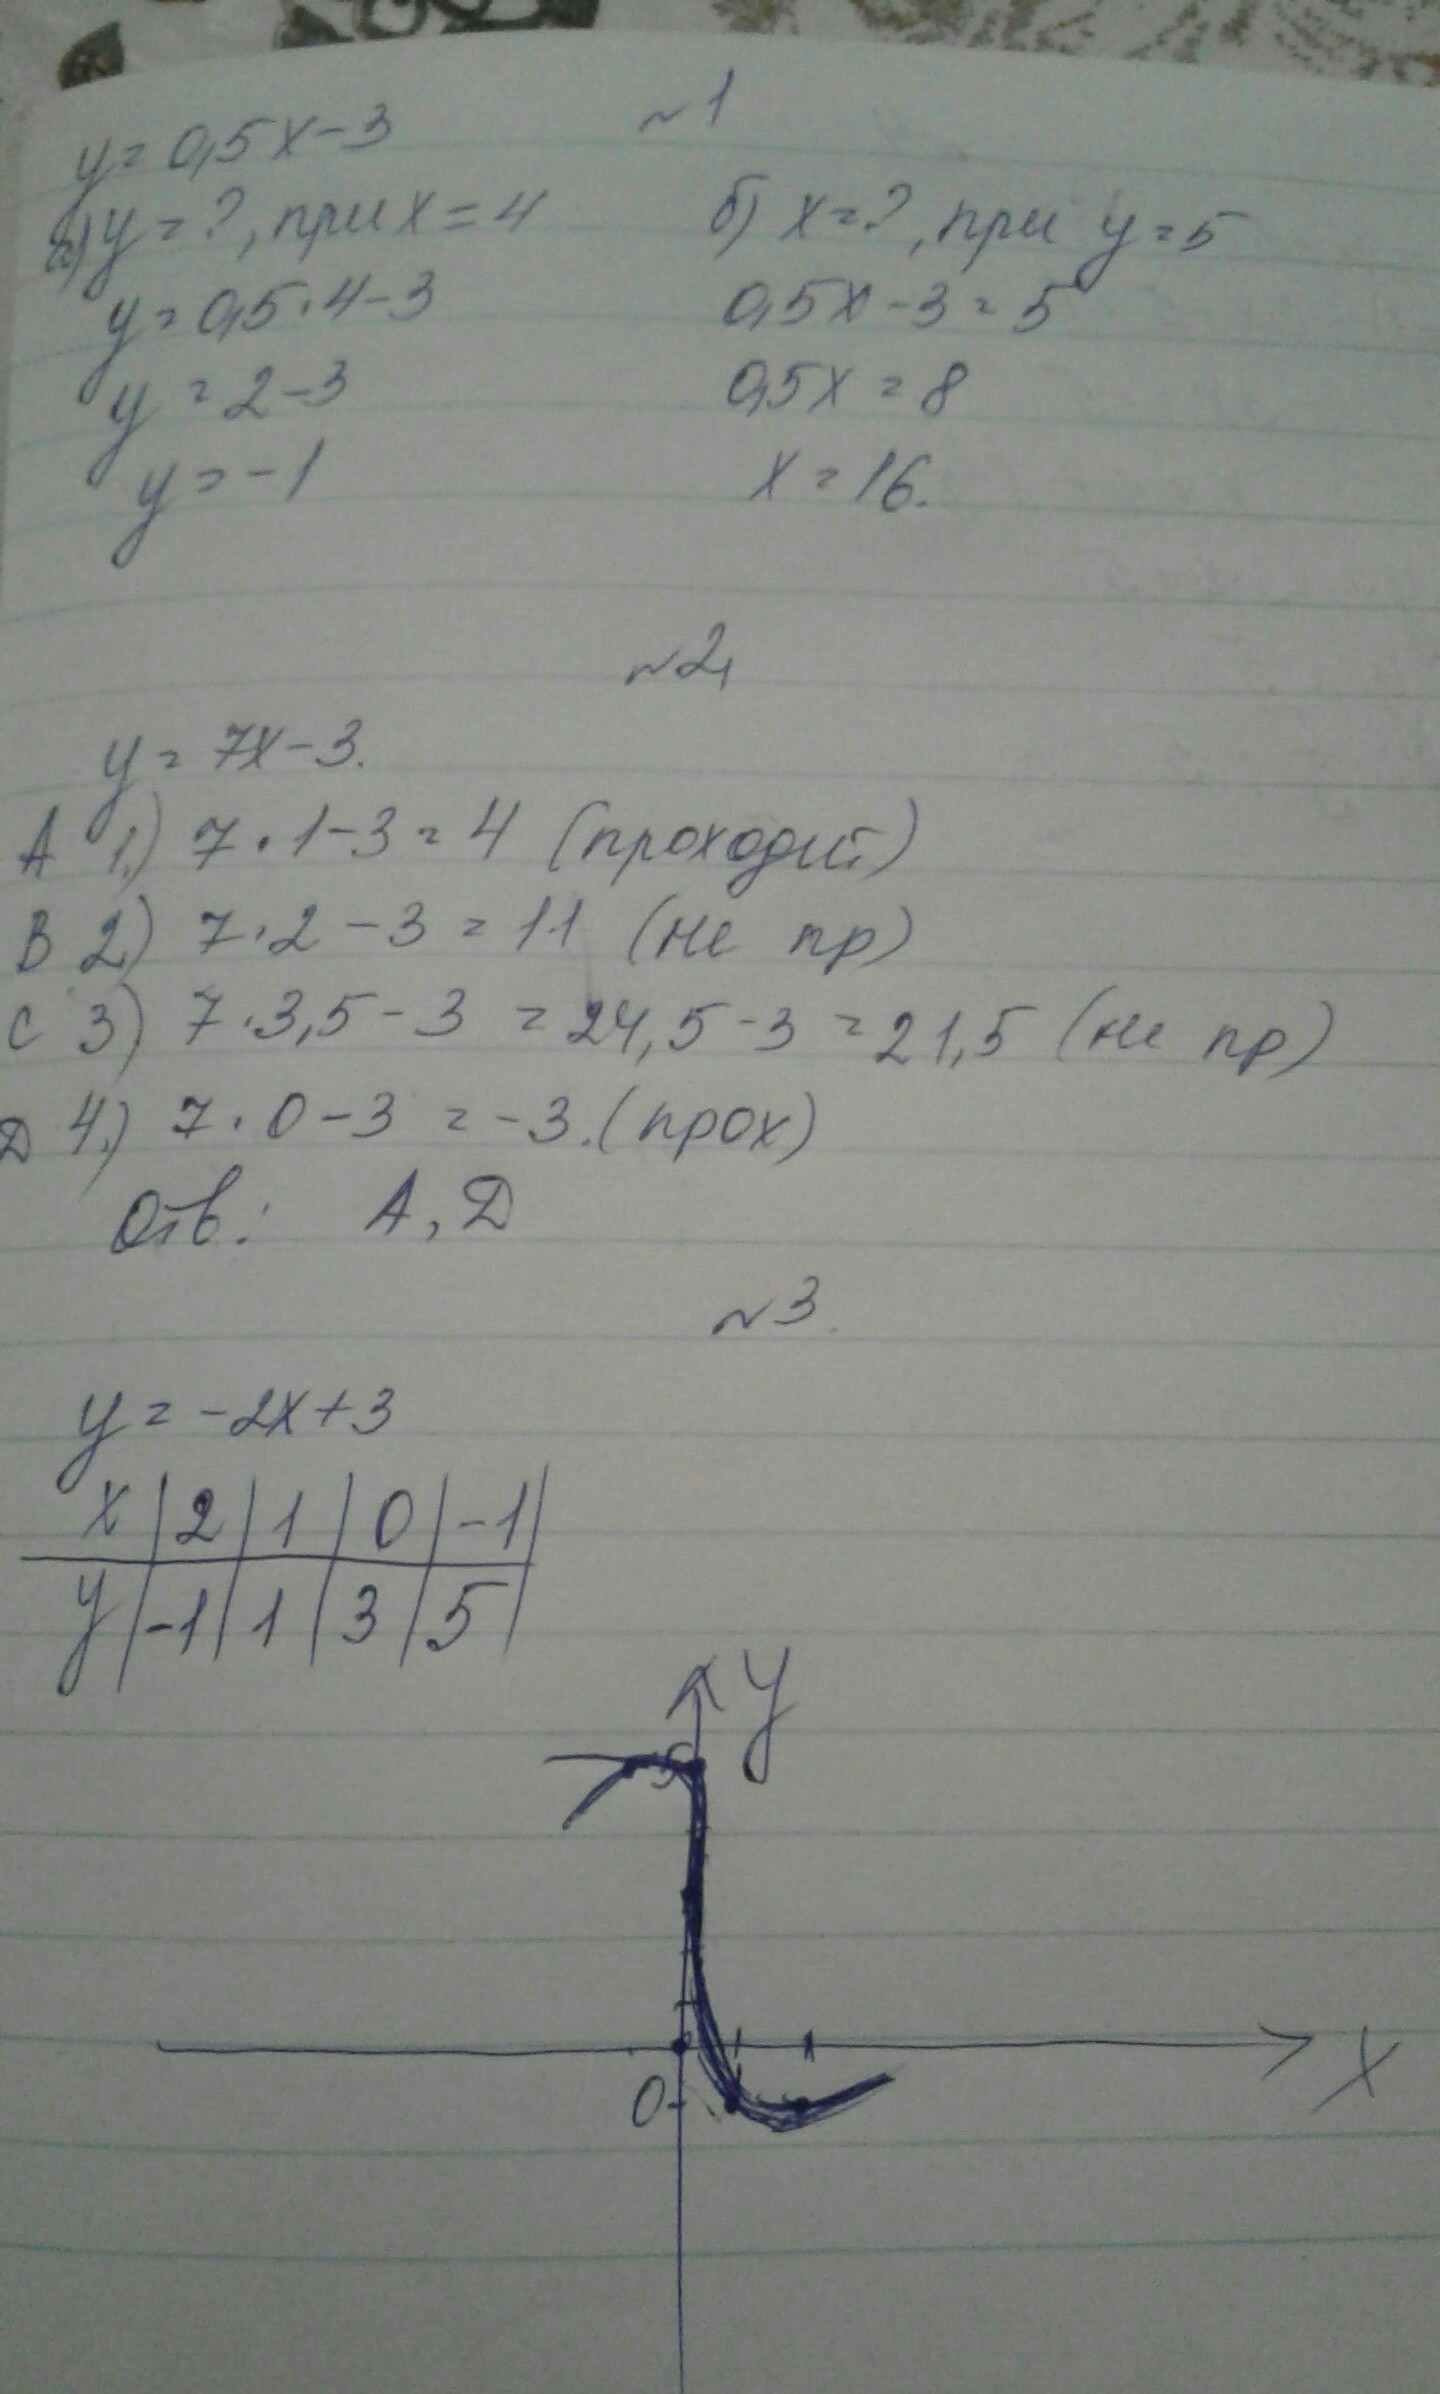 №1
y = 0,5x - 3
а) y = ?, при x = 4
y = 0,5 · 4 - 3
y = 2 - 3
y = -1
б) x = ?, при y = 5
0,5x - 3 = 5
0,5x = 8
x = 16.
№2
y = 7x - 3.
A 1.) 7 · 1 - 3 = 4 (проходит)
B 2) 7 · 2 - 3 = 11 (не пр)
C 3) 7 · 3,5 - 3 = 24,5 - 3 = 21,5 (не пр)
Д 4.) 7 · 0 - 3 = -3. (прох)
Отв: А, Д
№3.
y = -2x + 3
x | 2 | 1 | 0 | -1 |
y | -1 | 1 | 3 | 5 |
y
5
0
x